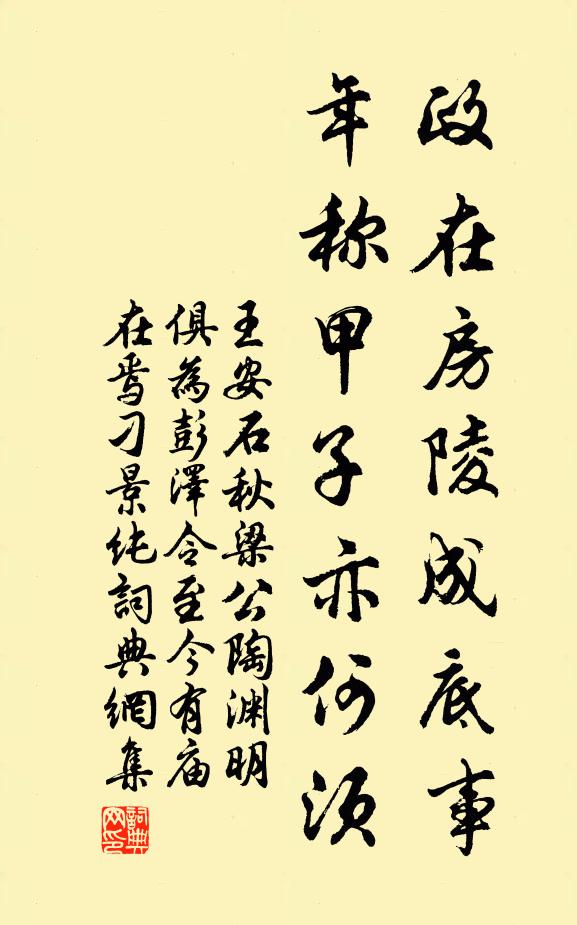 政在房陵成底事
年称甲子亦何须
王安石秋梁公陶渊明
俱為彭澤令至今有庙
在焉刁景纯詞典網集
詞典網印